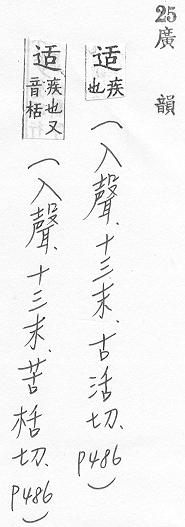 25 廣韻
适 疾也 (入聲、十三末、古活切、P486)
适 疾也又音栝 (入聲、十三末、苦栝切、P486)